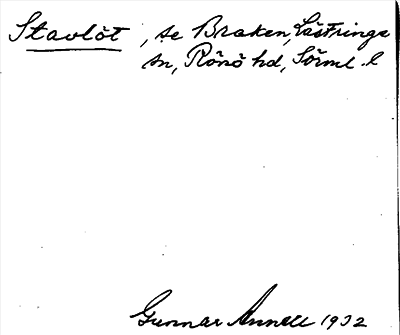 Stavlöt, se Braken, Lästringe
sn, Rönö hd, Sörml. l
Gunnar Annell 1932